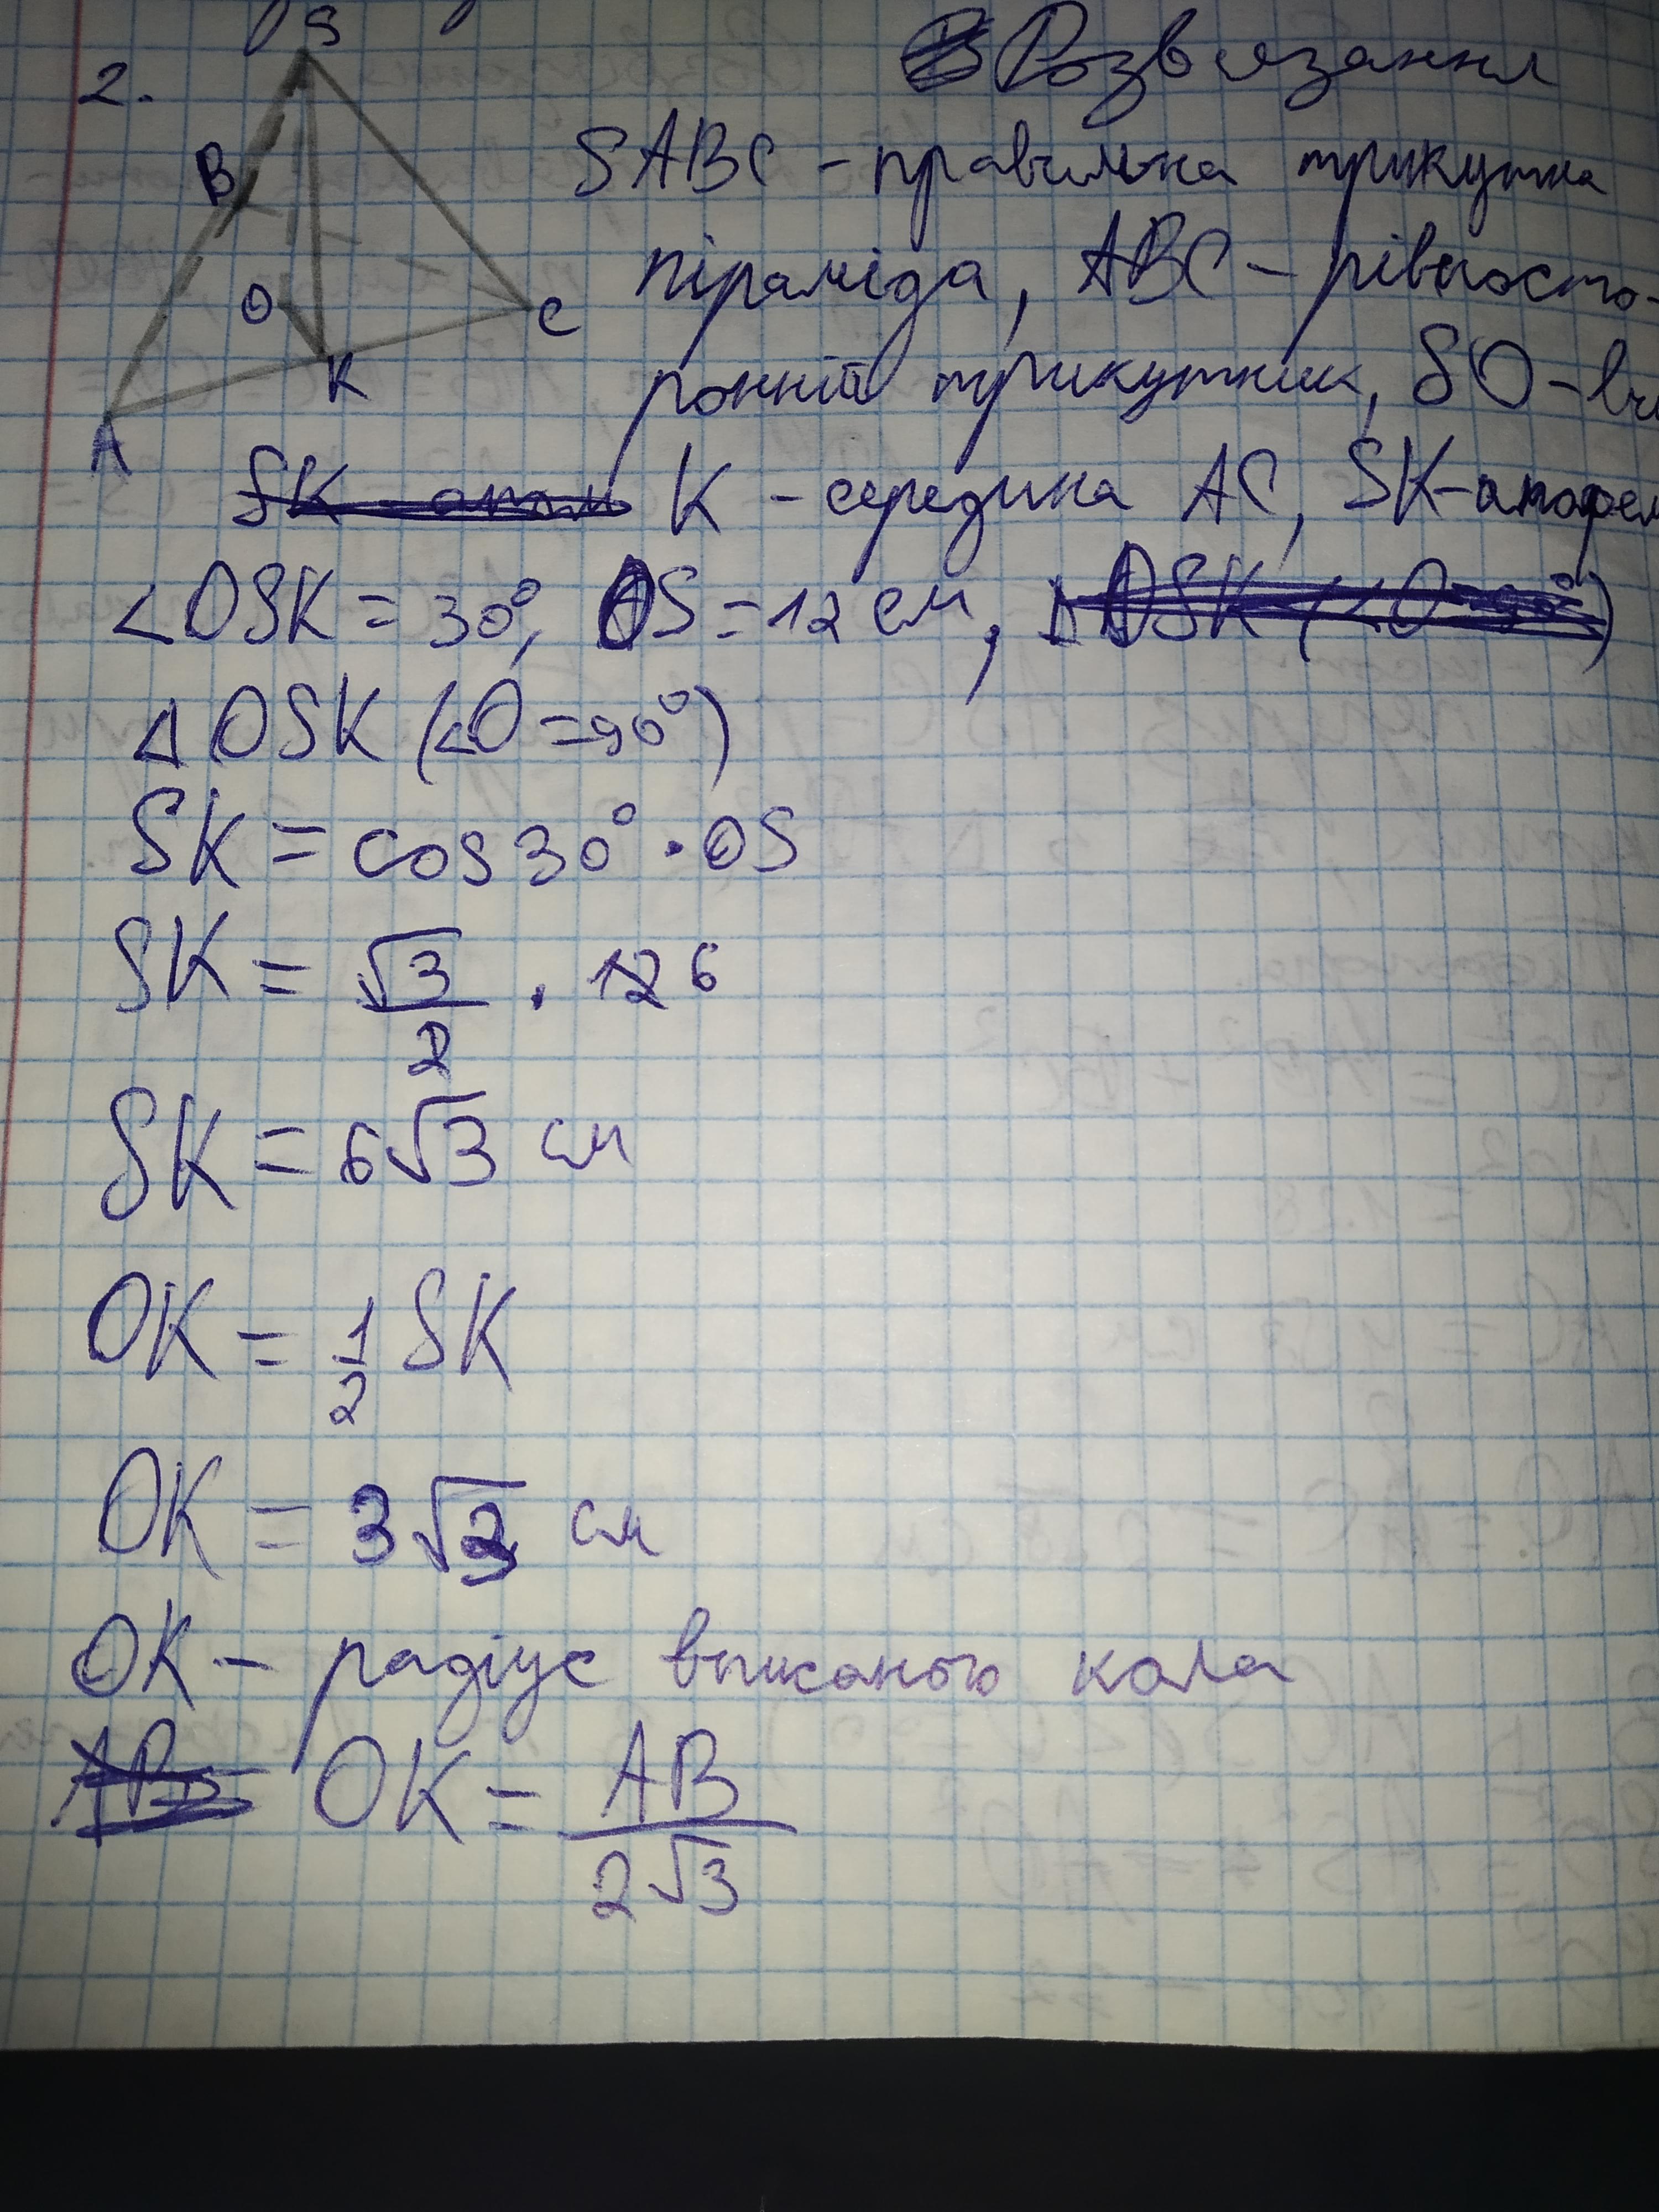 2.
S
B
O
C
K
A
Розвязання
SABC - правильна трикутна
піраміда, ABC - рівносто-
ронній трикутник, SO -
K - середина AC, SK - апофем
∠OSK = 30°, OS = 12 см,
△OSK (∠O = 90°)
SK = cos30° · OS
SK = √3/2 · 12 6
SK = 6√3 см
OK = 1/2 SK
OK = 3√3 см
OK - радіус вписаного кола
OK = AB/2√3